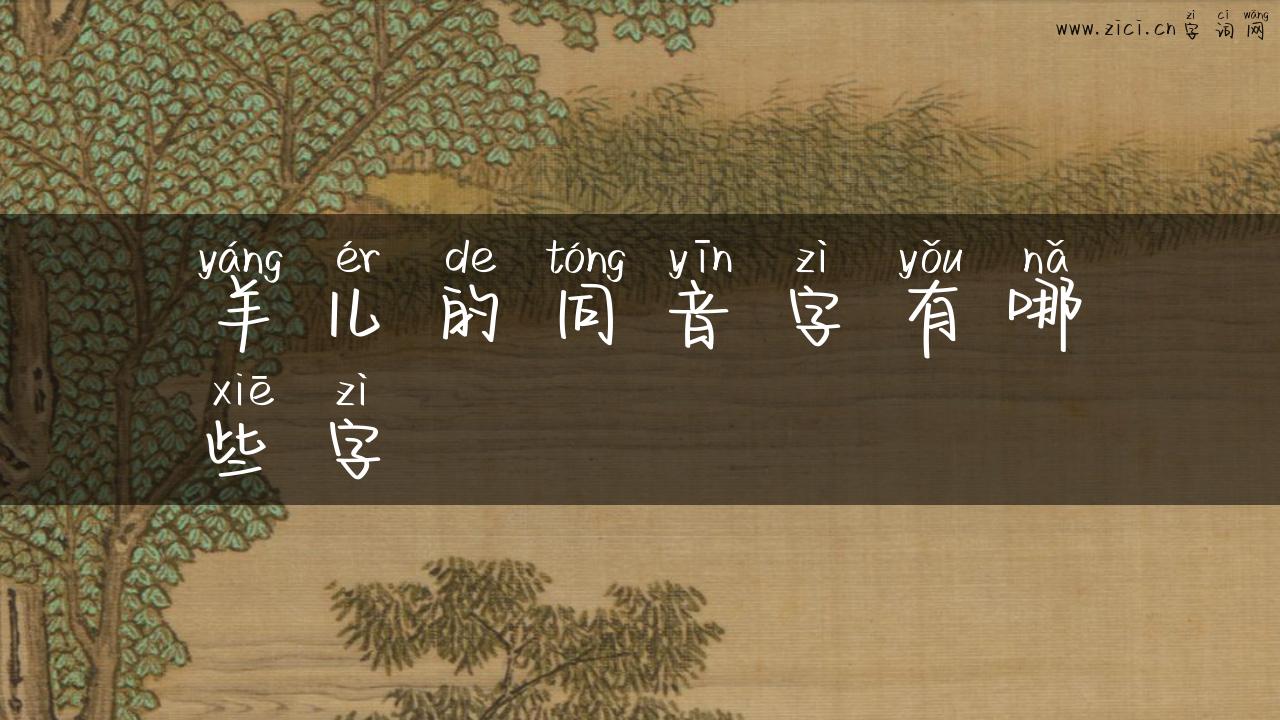 zì cí wǎng
www.zici.cn字词网
yáng ér de tóng yīn zì yǒu nǎ
羊儿的同音字有哪
xiē zì
些字